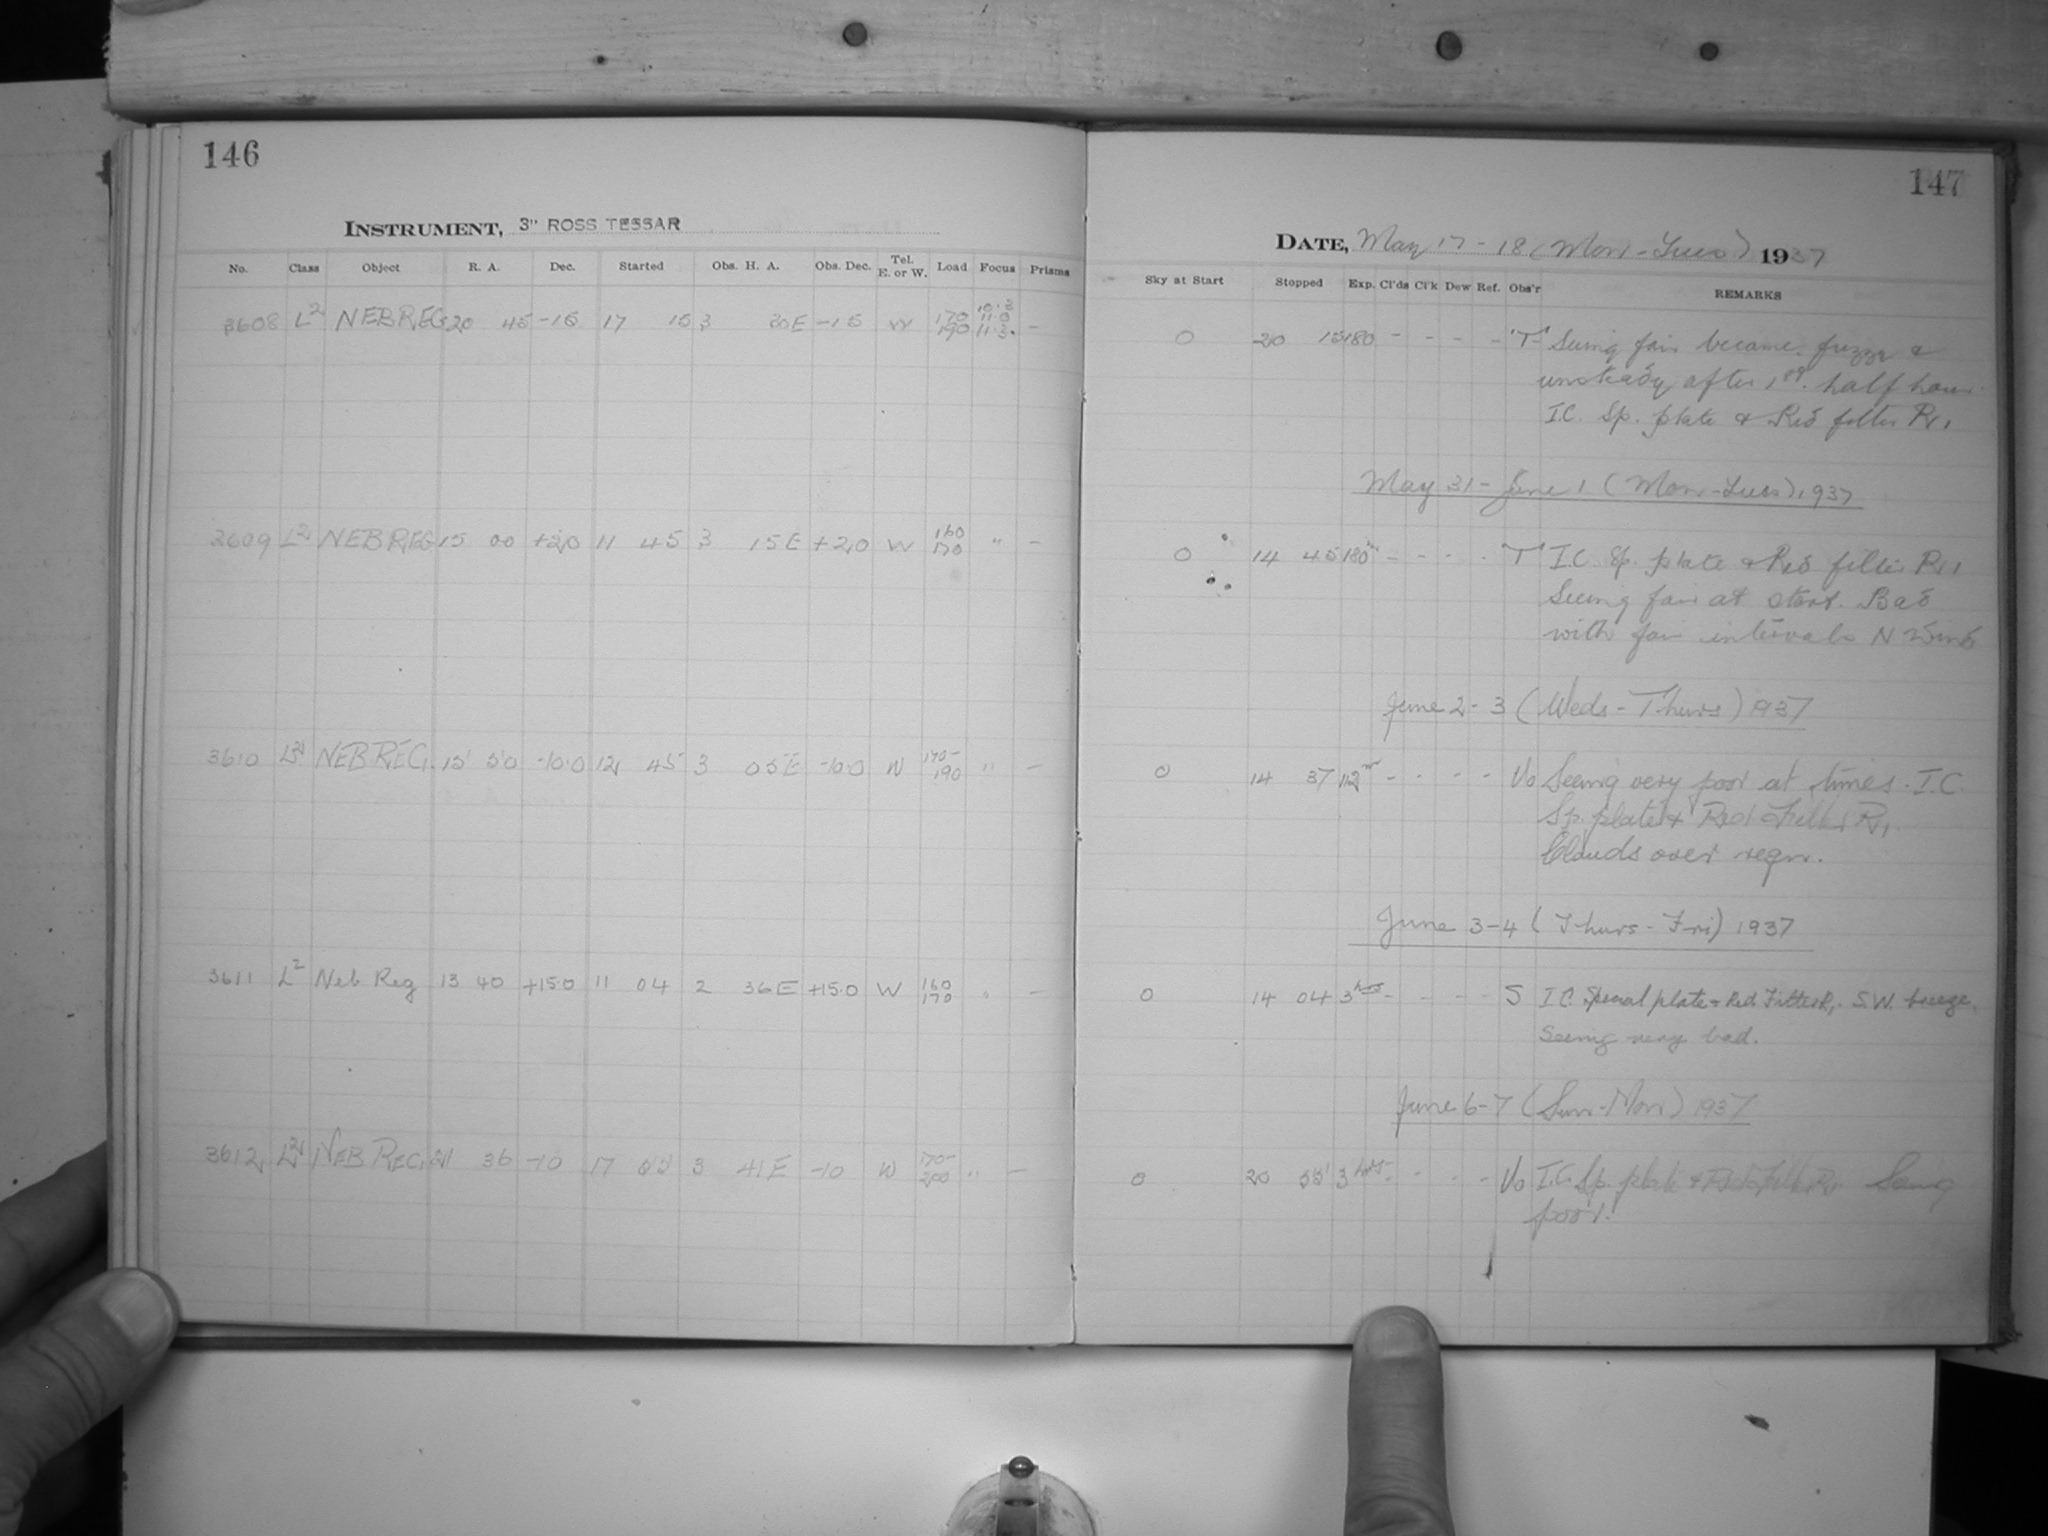 146
INSTRUMENT, 3" ROSS TESSAR
No. Class Object R. A. Dec. Started Obs. H. A. Obs. Dec. Tel. E. or W. Load Focus Prisms
3608 L2 NEB REG 20 45 -15 17 15 3 30E -15 W 170 190 10.3 11.0 11.3 -
3609 L2 NEB REG 15 00 +20 11 45 3 15E +20 W 160 170 " -
3610 L2 NEB REG. 15 50 -10.0 12 45 3 05E -10.0 W 170- 190 " -
3611 L2 Neb Reg 13 40 +15.0 11 04 2 36E +15.0 W 160 170 " -
3612 L2 NEB REG. 21 36 -10 17 55 3 41E -10 W 170- 200 " -
147
DATE, May 17-18 (Mon-Tues) 1937
Sky at Start Stopped Exp. Cl'ds Cl'k Dew Ref. Obs'r REMARKS
0 20 15 180 - - - - "T" Seeing fair became fuzzy &
unsteady after 1st. half hour.
I.C. Sp. plate & Red filter R1
May 31-June 1 (Mon-Tues) 1937
0 14 45 180m - - - - "T" I.C. Sp. plate & Red filter R1
Seeing fair at start. Bad
with fair intervals N Wind
June 2-3 (Weds-Thurs) 1937
0 14 37 112m - - - - Vo Seeing very poor at times. I.C.
Sp. plate & Red Filter R1.
Clouds over regn.
June 3-4 (Thurs-Fri) 1937
0 14 04 3hrs - - - - S I.C. Special plate & Red Filter R1. S.W. breeze.
Seeing very bad.
June 6-7 (Sun-Mon) 1937
0 20 55 3hrs - - - - Vo I.C. Sp. plate & Red Filter R1. Seeing
poor.